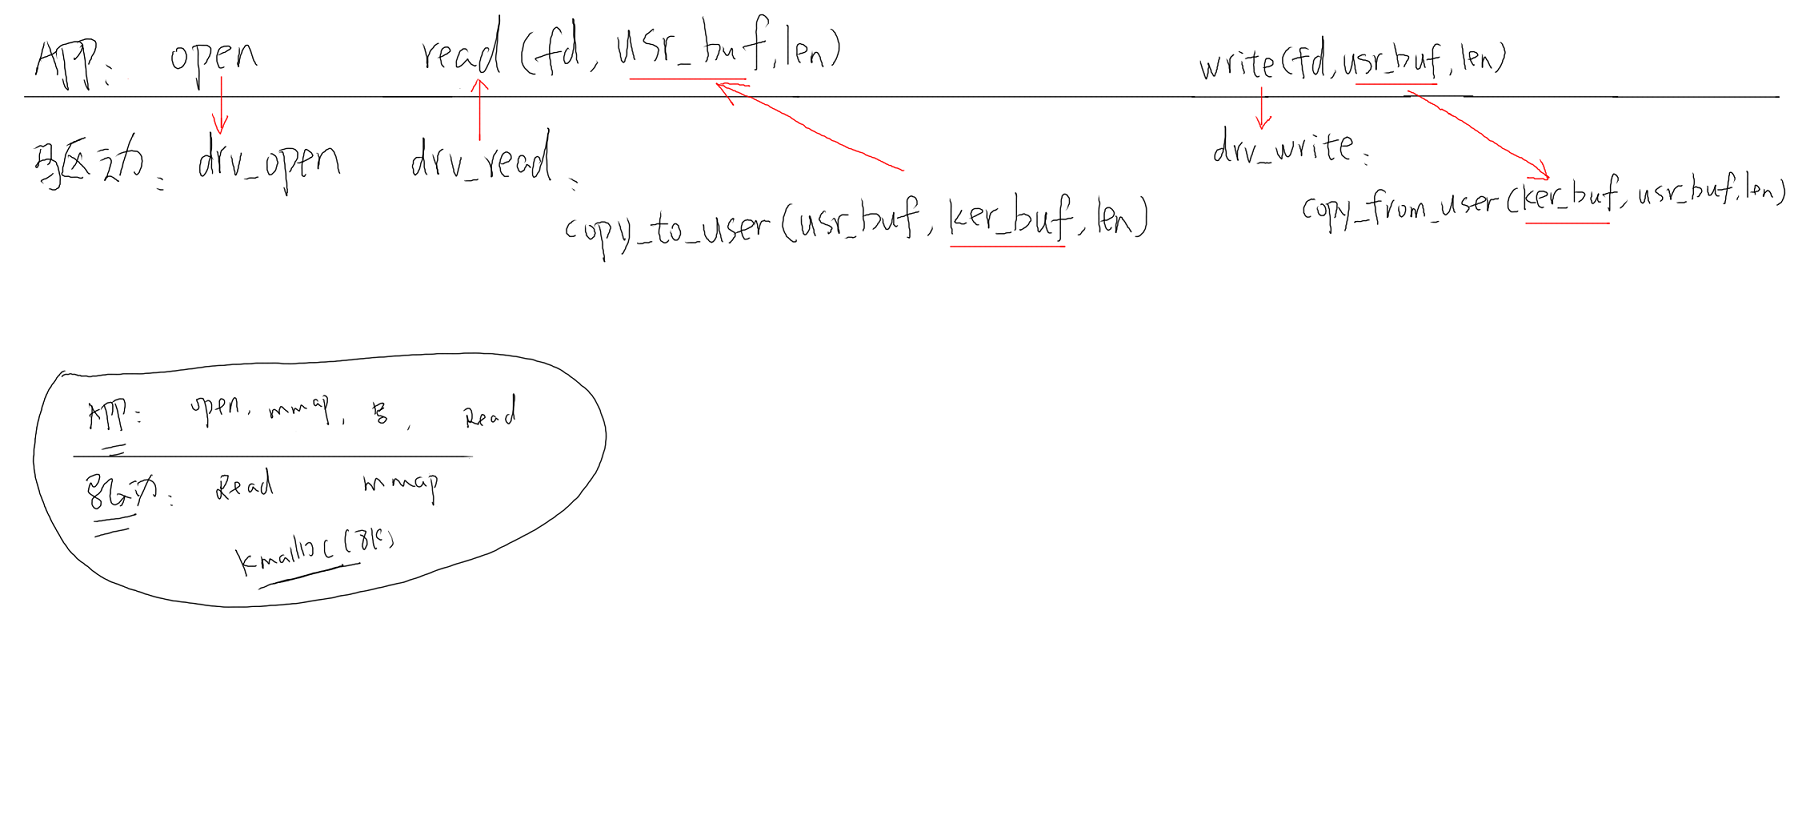 APP: open read (fd, usr_buf, len) write(fd, usr_buf, len)
驱动: drv_open drv_read: drv_write:
copy_to_user (usr_buf, ker_buf, len) copy_from_user (ker_buf, usr_buf, len)
APP: open, mmap, 写, Read
驱动: Read mmap
kmalloc (8K)